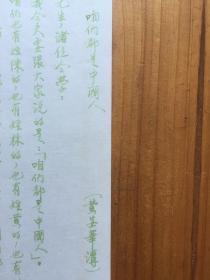 咱們都是中國人
先生，諸位仝學：
我今天要跟大家説的是：「咱們都是中國人」。
咱們也有姓陳的，也有姓林的，也有姓黃的，也有